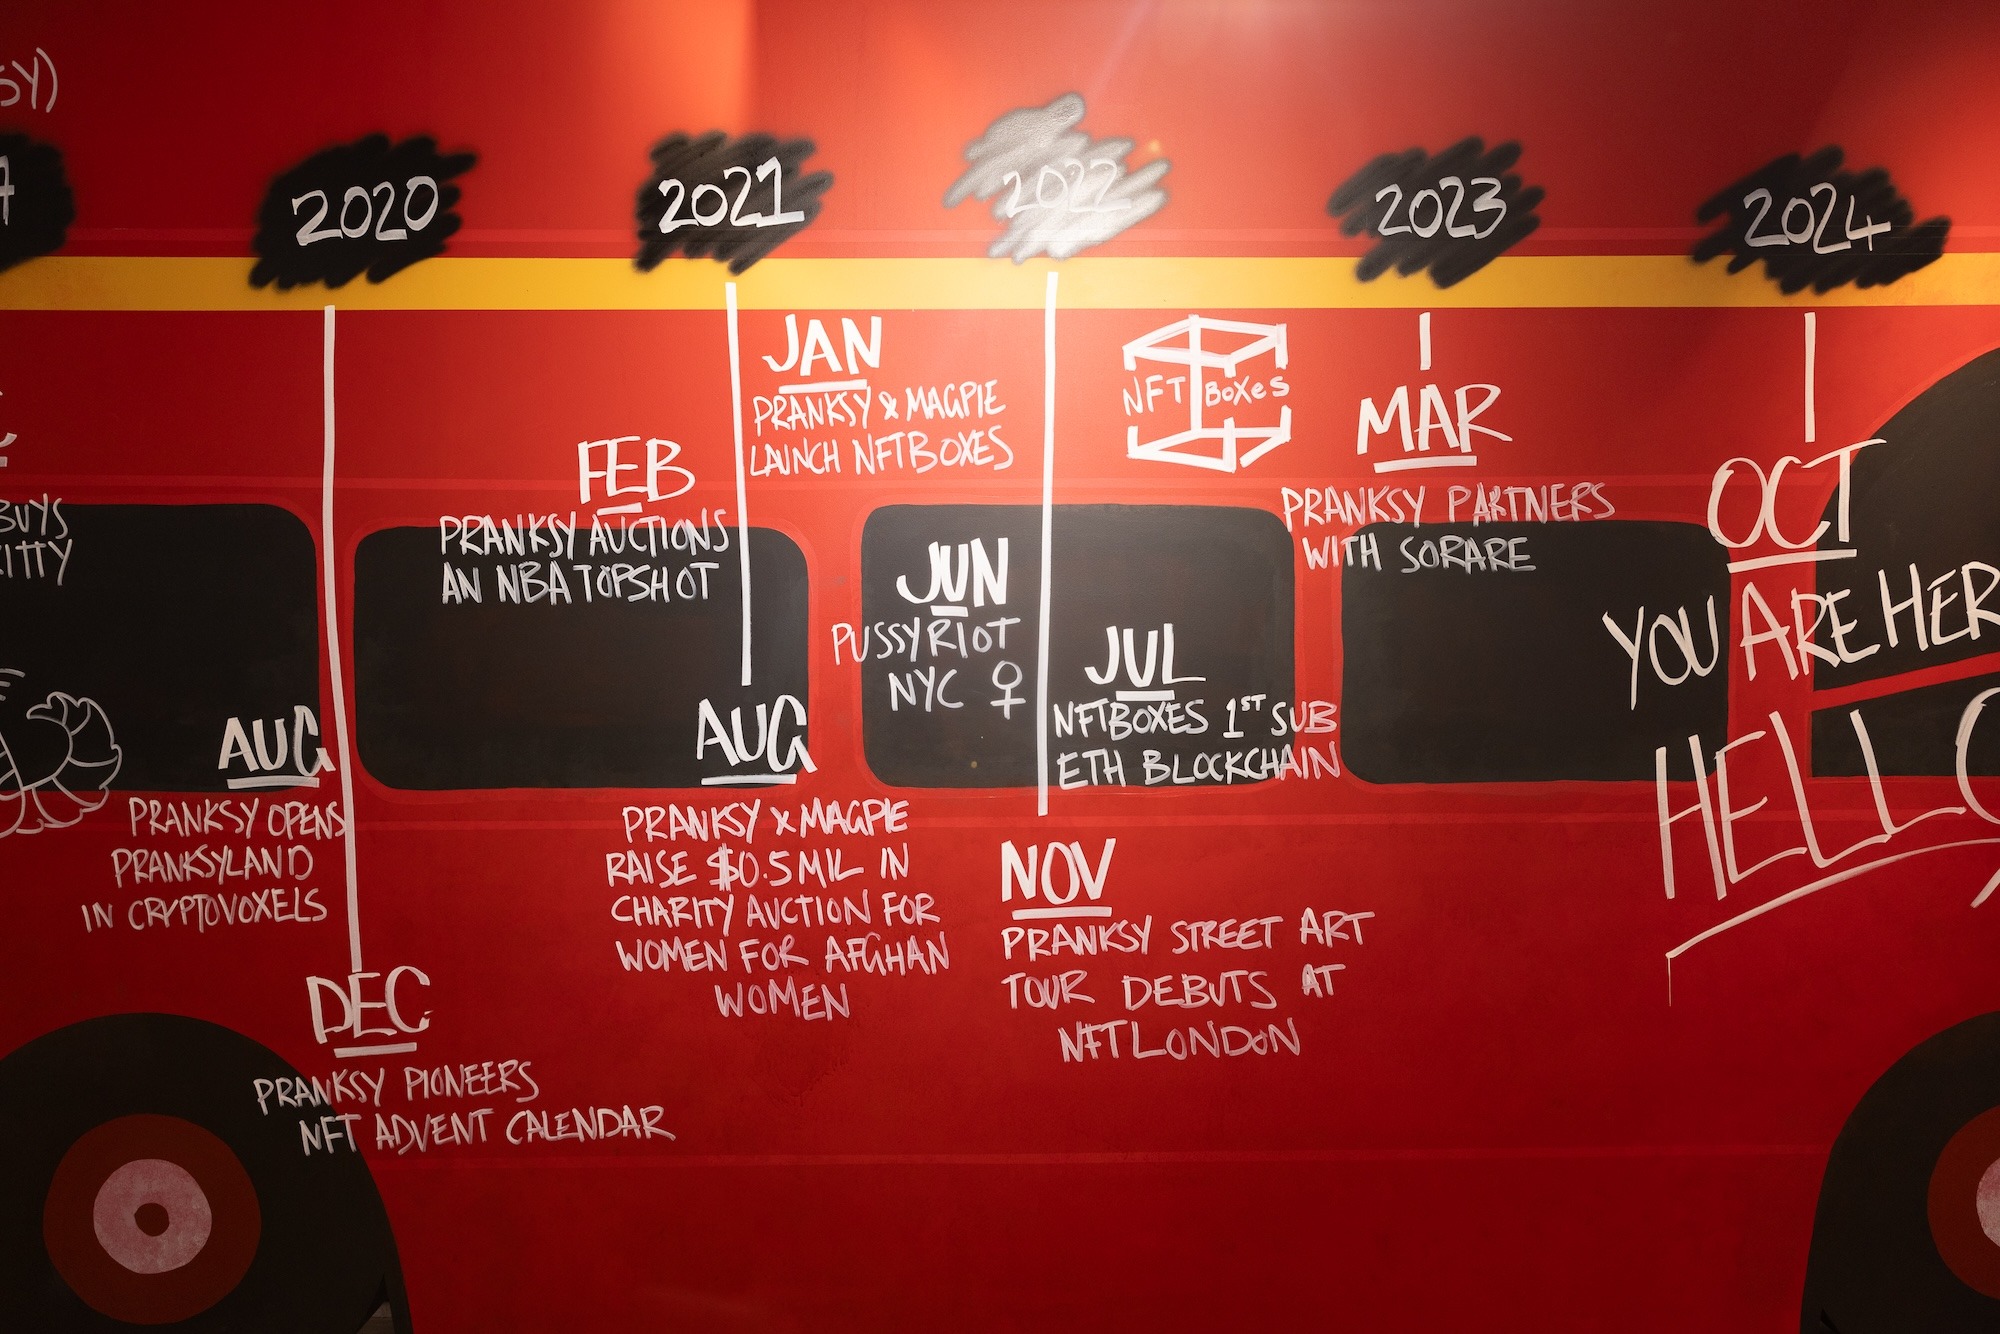 2020
2021
2022
2023
2024
BUYS
AUG
PRANKSY OPENS
PRANKSYLAND
IN CRYPTOVOXELS
DEC
PRANKSY PIONEERS
NFT ADVENT CALENDAR
JAN
PRANKSY & MAGPIE
LAUNCH NFTBOXES
FEB
PRANKSY AUCTIONS
AN NBA TOPSHOT
AUG
PRANKSY X MAGPIE
RAISE $0.5MIL IN
CHARITY AUCTION FOR
WOMEN FOR AFGHAN
WOMEN
JUN
PUSSYRIOT
NYC ♀
JUL
NFTBOXES 1ST SUB
ETH BLOCKCHAIN
NOV
PRANKSY STREET ART
TOUR DEBUTS AT
NFTLONDON
NFT BOXES
MAR
PRANKSY PARTNERS
WITH SORARE
OCT
YOU ARE HER
HELLO